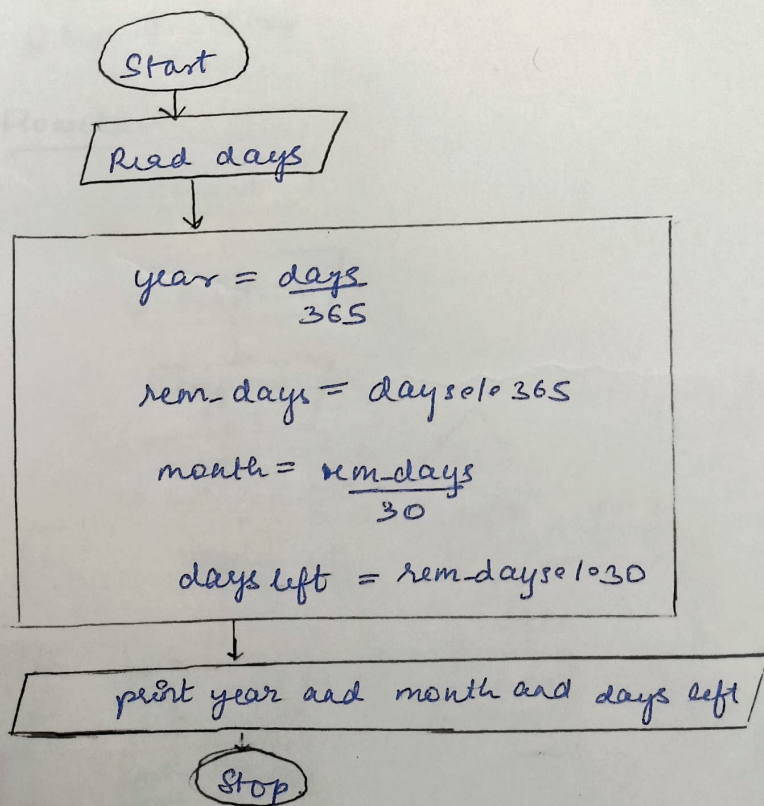 Start
Read days
year = days
365
rem-days = days % 365
month = rem-days
30
days left = rem-days % 30
print year and month and days left
Stop